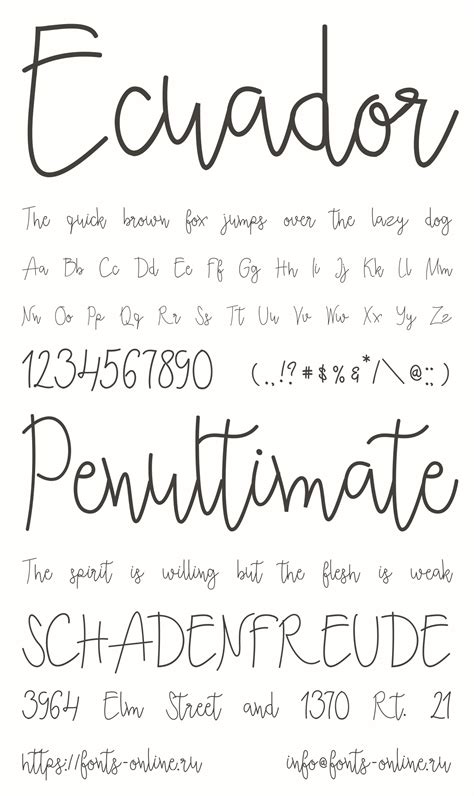 Ecuador
The quick brown fox jumps over the lazy dog
Aa Bb Cc Dd Ee Ff Gg Hh Ii Jj Kk Ll Mm
Nn Oo Pp Qq Rr Ss Tt Uu Vv Ww Xx Yy Zz
1234567890 (.,!?#$%&*/\@:;)
Penultimate
The spirit is willing but the flesh is weak
SCHADENFREUDE
3964 Elm Street and 1370 Rt. 21
https://fonts-online.ru info@fonts-online.ru